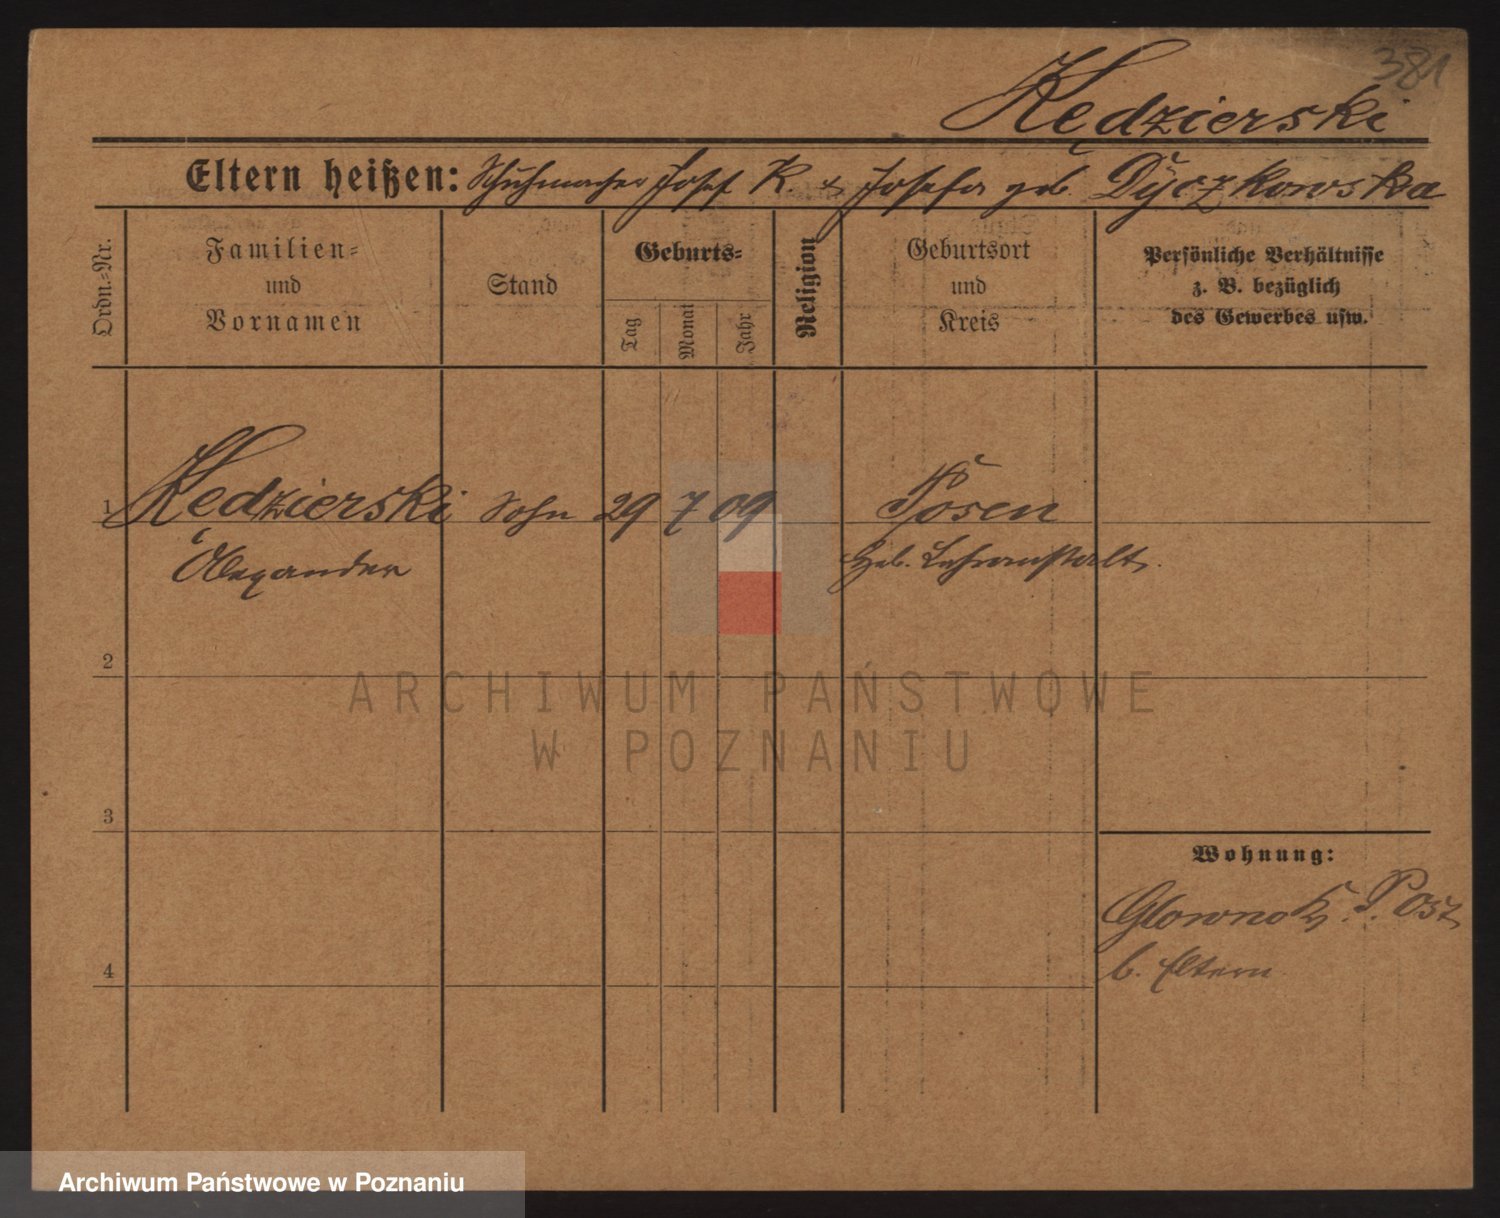 381
Kędzierski
Eltern heißen: Schuhmacher Josef K. & Josefa geb. Dyczkowska
Ordn.=Nr.
Familien=
und
Vornamen
Stand
Geburts=
Tag
Monat
Jahr
Religion
Geburtsort
und
Kreis
Persönliche Verhältnisse
z. B. bezüglich
des Gewerbes usw.
1 Kędzierski Sohn 29 7 09 Posen
Alexander Heb. Lehranstalt.
2
ARCHIWUM PAŃSTWOWE
W POZNANIU
3
Wohnung:
Glowno K. P. Ost
4 b. Eltern
Archiwum Państwowe w Poznaniu